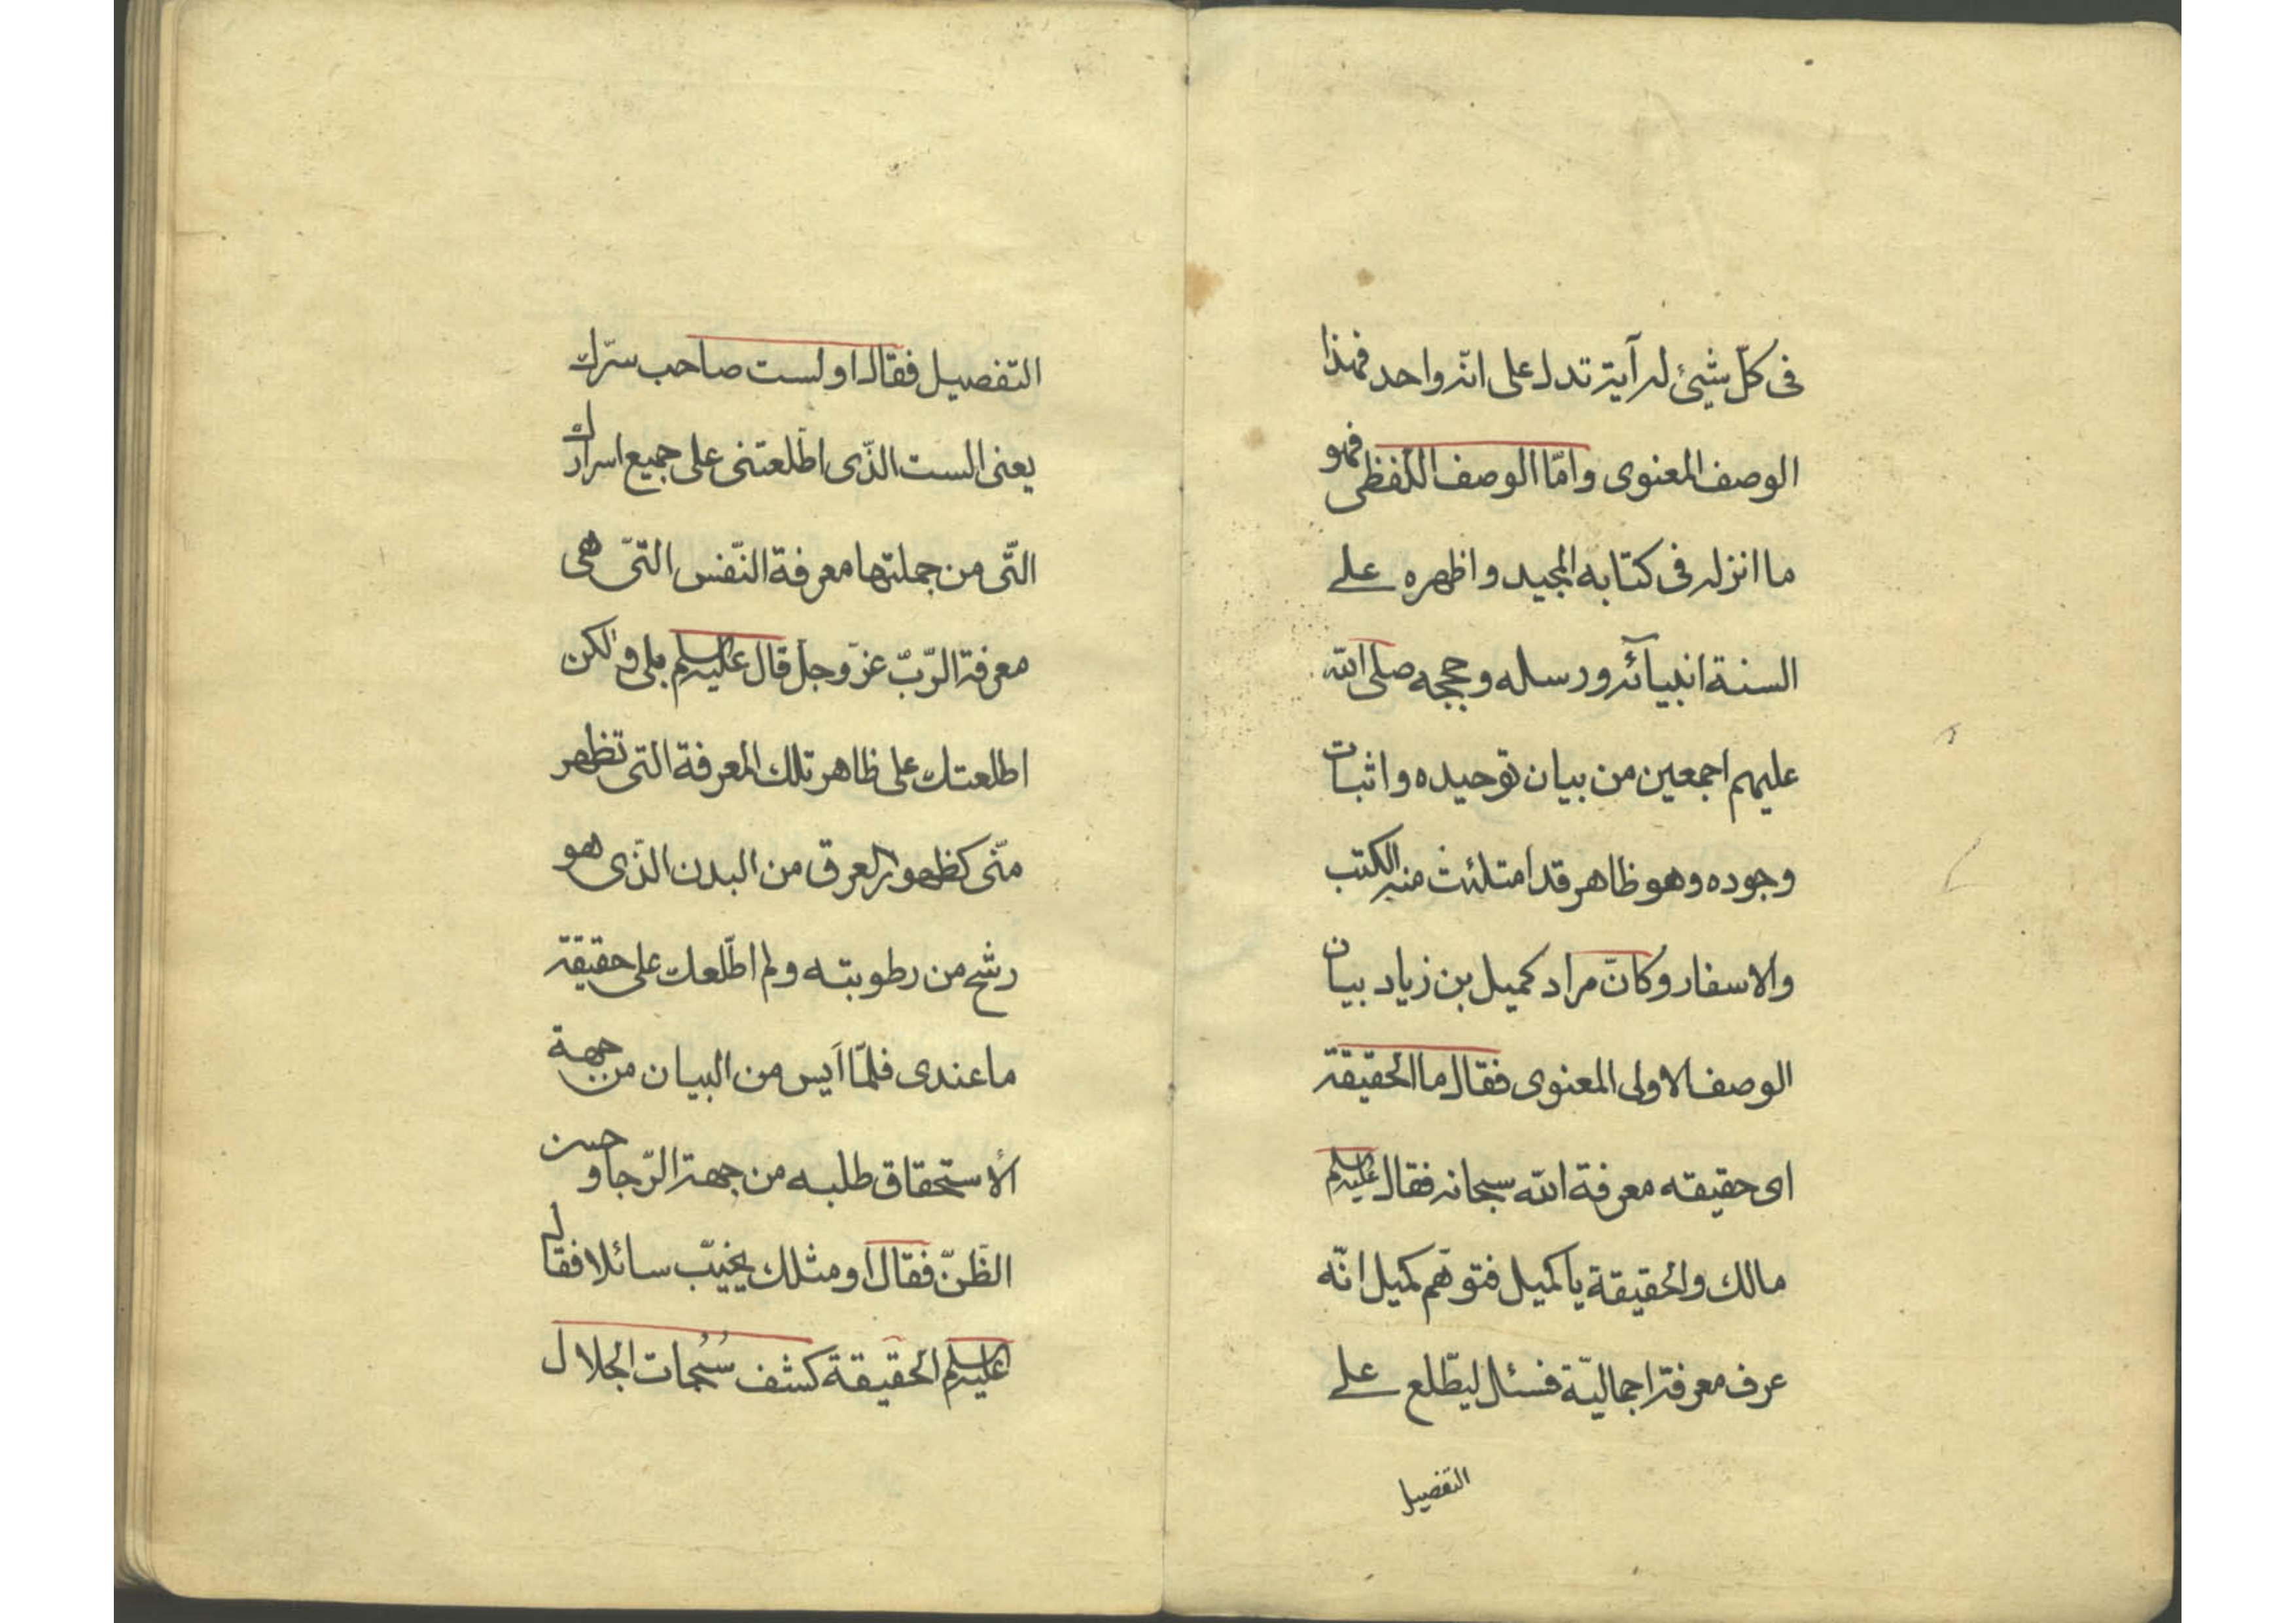 فى كلّ شيئ له آية تدل على انّه واحد فهذا
الوصف المعنوى وامّا الوصف اللفظى فهو
ما انزله فى كتابه المجيد و اظهره على
السنة انبيآئه و رسله و حججه صلى الله
عليهم اجمعين من بيان توحيده و اثبات
وجوده وهو ظاهر قد امتلئت منه الكتب
والاسفار وكان مراد كميل بن زياد بيان
الوصف الاولى المعنوى فقال ما الحقيقة
اى حقيقه معرفة الله سبحانه فقال عليه السلم
مالك والحقيقة يا كميل فتوهّم كميل انّه
عرف معرفة اجماليّة فسئل ليطّلع على
التفصيل
التفصيل فقال اولست صاحب سرّك
يعنى الست الذّى اطّلعتنى على جميع اسرارك
التّى من جملتها معرفة النّفس التىّ هى
معرفة الرّبّ عزّ وجلّ قال عليه السلم بلى ولكن
اطلعتك على ظاهر تلك المعرفة التى تظهر
منّى كظهور العرق من البدن الذّى هو
رشح من رطوبته ولم اطّلعك على حقيقة
ما عندى فلمّا أيس من البيان من جهة
الأستحقاق طلبه من جهة الرّجا و حسن
الظّنّ فقال أو مثلك يخيّب سائلا فقال
عليه السلم الحقيقة كشف سُبُحات الجلال